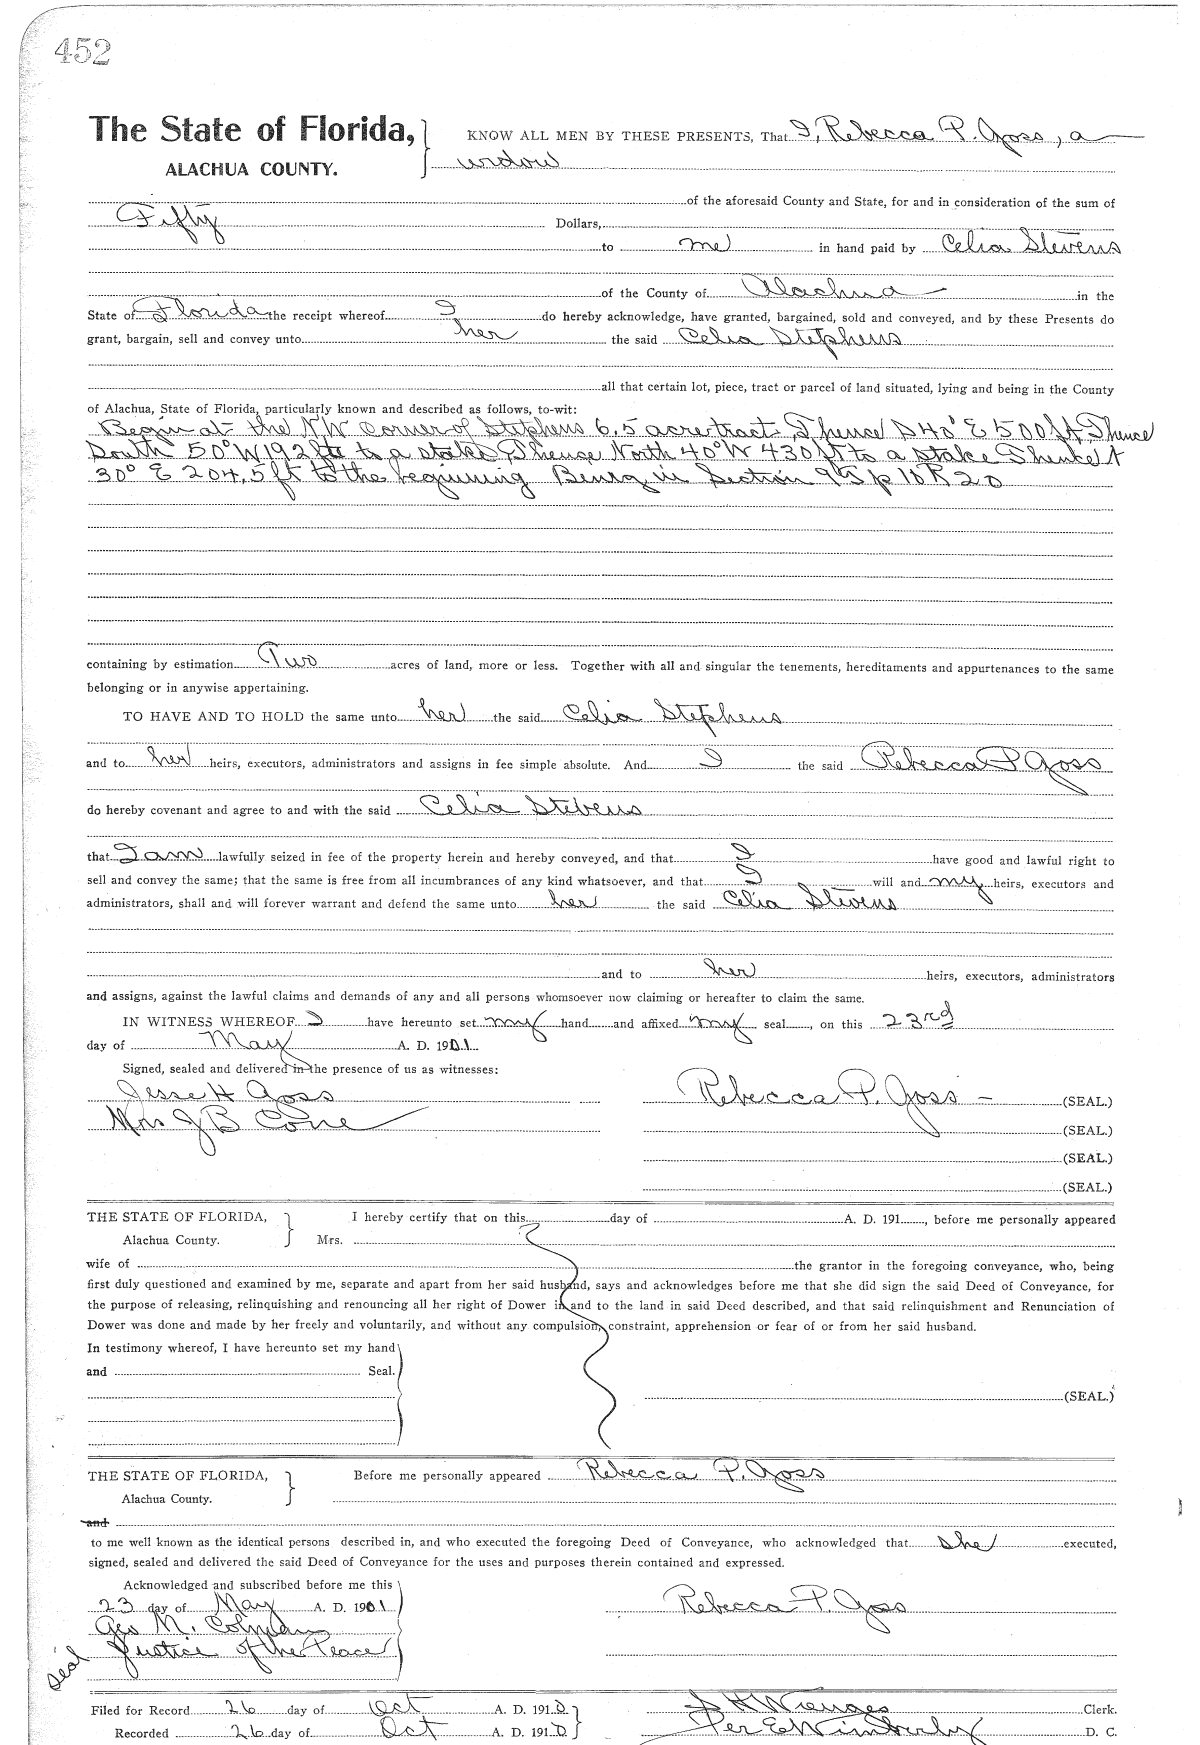 452
The State of Florida,
ALACHUA COUNTY.
KNOW ALL MEN BY THESE PRESENTS, That I, Rebecca P. Goss, a
widow
of the aforesaid County and State, for and in consideration of the sum of
Fifty Dollars,
to me in hand paid by Celia Stevens
of the County of Alachua in the
State of Florida the receipt whereof I do hereby acknowledge, have granted, bargained, sold and conveyed, and by these Presents do
grant, bargain, sell and convey unto her the said Celia Stephens
all that certain lot, piece, tract or parcel of land situated, lying and being in the County
of Alachua, State of Florida, particularly known and described as follows, to-wit:
Begin at the NW Corner of Stephens 6.5 acre tract, Thence S 40° E 500 ft Thence
South 50° W 192 ft to a stake, Thence North 40° W 430 ft to a stake Thence N
30° E 204,5 ft to the beginning Being in Section 9 Tp 10 R 20
containing by estimation Two acres of land, more or less. Together with all and singular the tenements, hereditaments and appurtenances to the same
belonging or in anywise appertaining.
TO HAVE AND TO HOLD the same unto her the said Celia Stephens
and to her heirs, executors, administrators and assigns in fee simple absolute. And I the said Rebecca P Goss
do hereby covenant and agree to and with the said Celia Stevens
that I am lawfully seized in fee of the property herein and hereby conveyed, and that I have good and lawful right to
sell and convey the same; that the same is free from all incumbrances of any kind whatsoever, and that I will and my heirs, executors and
administrators, shall and will forever warrant and defend the same unto her the said Celia Stevens
and to her heirs, executors, administrators
and assigns, against the lawful claims and demands of any and all persons whomsoever now claiming or hereafter to claim the same.
IN WITNESS WHEREOF I have hereunto set my hand and affixed my seal, on this 23rd
day of May A. D. 1901.
Signed, sealed and delivered in the presence of us as witnesses:
Jesse H Goss Rebecca P. Goss (SEAL.)
Mrs J B Cone (SEAL.)
(SEAL.)
(SEAL.)
THE STATE OF FLORIDA,
Alachua County.
I hereby certify that on this day of A. D. 191, before me personally appeared
Mrs.
wife of the grantor in the foregoing conveyance, who, being
first duly questioned and examined by me, separate and apart from her said husband, says and acknowledges before me that she did sign the said Deed of Conveyance, for
the purpose of releasing, relinquishing and renouncing all her right of Dower in and to the land in said Deed described, and that said relinquishment and Renunciation of
Dower was done and made by her freely and voluntarily, and without any compulsion, constraint, apprehension or fear of or from her said husband.
In testimony whereof, I have hereunto set my hand
and Seal.
(SEAL.)
THE STATE OF FLORIDA,
Alachua County.
Before me personally appeared Rebecca P. Goss
and
to me well known as the identical persons described in, and who executed the foregoing Deed of Conveyance, who acknowledged that she executed,
signed, sealed and delivered the said Deed of Conveyance for the uses and purposes therein contained and expressed.
Acknowledged and subscribed before me this
23 day of May A. D. 1901 Rebecca P. Goss
Geo M. Colman
Justice of the Peace
seal
Filed for Record 26 day of Oct A. D. 1910 S H Wienges Clerk.
Recorded 26 day of Oct A. D. 1910 Per E Wimberly D. C.